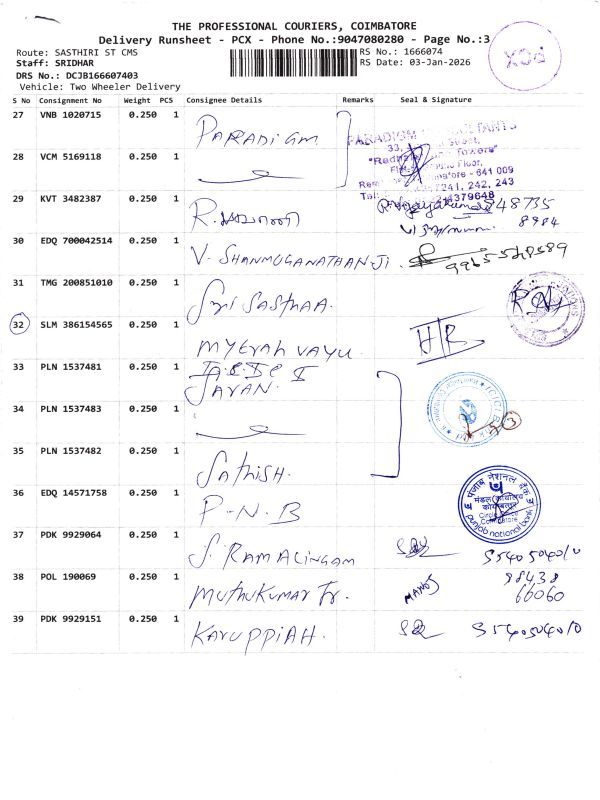 THE PROFESSIONAL COURIERS, COIMBATORE
Delivery Runsheet - PCX - Phone No.:9047080280 - Page No.:3
Route: SASTHIRI ST CMS
RS No.: 1666074
Staff: SRIDHAR
RS Date: 03-Jan-2026
DRS No.: DCJB166607403
Vehicle: Two Wheeler Delivery
PCX
S No Consignment No Weight PCS Consignee Details Remarks Seal & Signature
27 VNB 1020715 0.250 1 PARADIGM
PARADIGM
33,
"Towers"
Floor,
641 009
241, 242, 243
28 VCM 5169118 0.250 1
29 KVT 3482387 0.250 1 R.
48735
8984
30 EDQ 700042514 0.250 1 V. SHANMUGANATHAN.JI.
31 TMG 200851010 0.250 1 Sri SASTHAA.
32 SLM 386154565 0.250 1 MYERAH VAYU
33 PLN 1537481 0.250 1
SAVAN.
ICICI Bank
34 PLN 1537483 0.250 1
35 PLN 1537482 0.250 1 SATHISH.
36 EDQ 14571758 0.250 1 P-N.B
पंजाब नैशनल बैंक
मंडल कार्यालय
Coimbatore
punjab national bank
37 PDK 9929064 0.250 1 S. RAMALINGAM
38 POL 190069 0.250 1 MUTHUKUMAR Tr. MANOJ 98438
66060
39 PDK 9929151 0.250 1 KARUPPIAH.